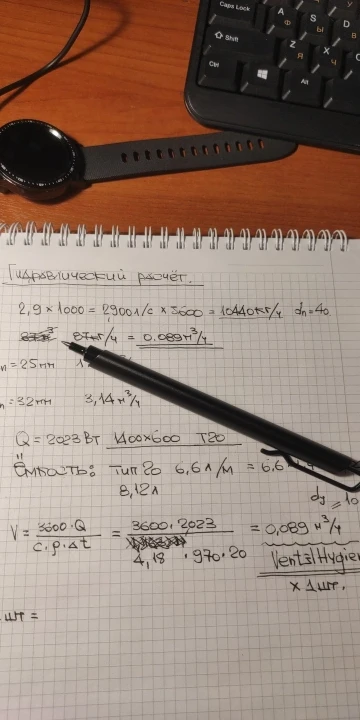 Caps Lock
A Ф
S Ы
D В
Shift
Z Я
X Ч
Ctrl
Alt
Гидравлический расчёт.
2,9 × 1000 = 2900 л/с × 3600 = 10440 кг/ч dп=40
87 кг/ч = 0.089 м³/ч
= 25 мм
= 32 мм 3,14 м³/ч
Q = 2023 Вт 1400×600 T20
Ёмкость: тип 20 6,6 л/м = 6,6
8,12 л
dу = 10
V = 3600·Q / c·ρ·Δt = 3600·2023 / 4,18 · 970·20 = 0,089 м³/ч
Ventil Hygien
× 1 шт.
шт =